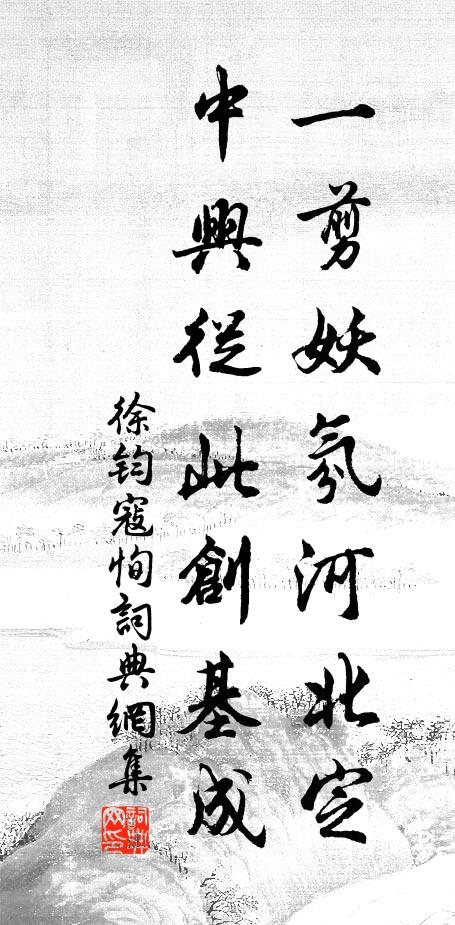 一剪妖氛河北定
中興從此創基成
徐鈞寇恂詞典網集